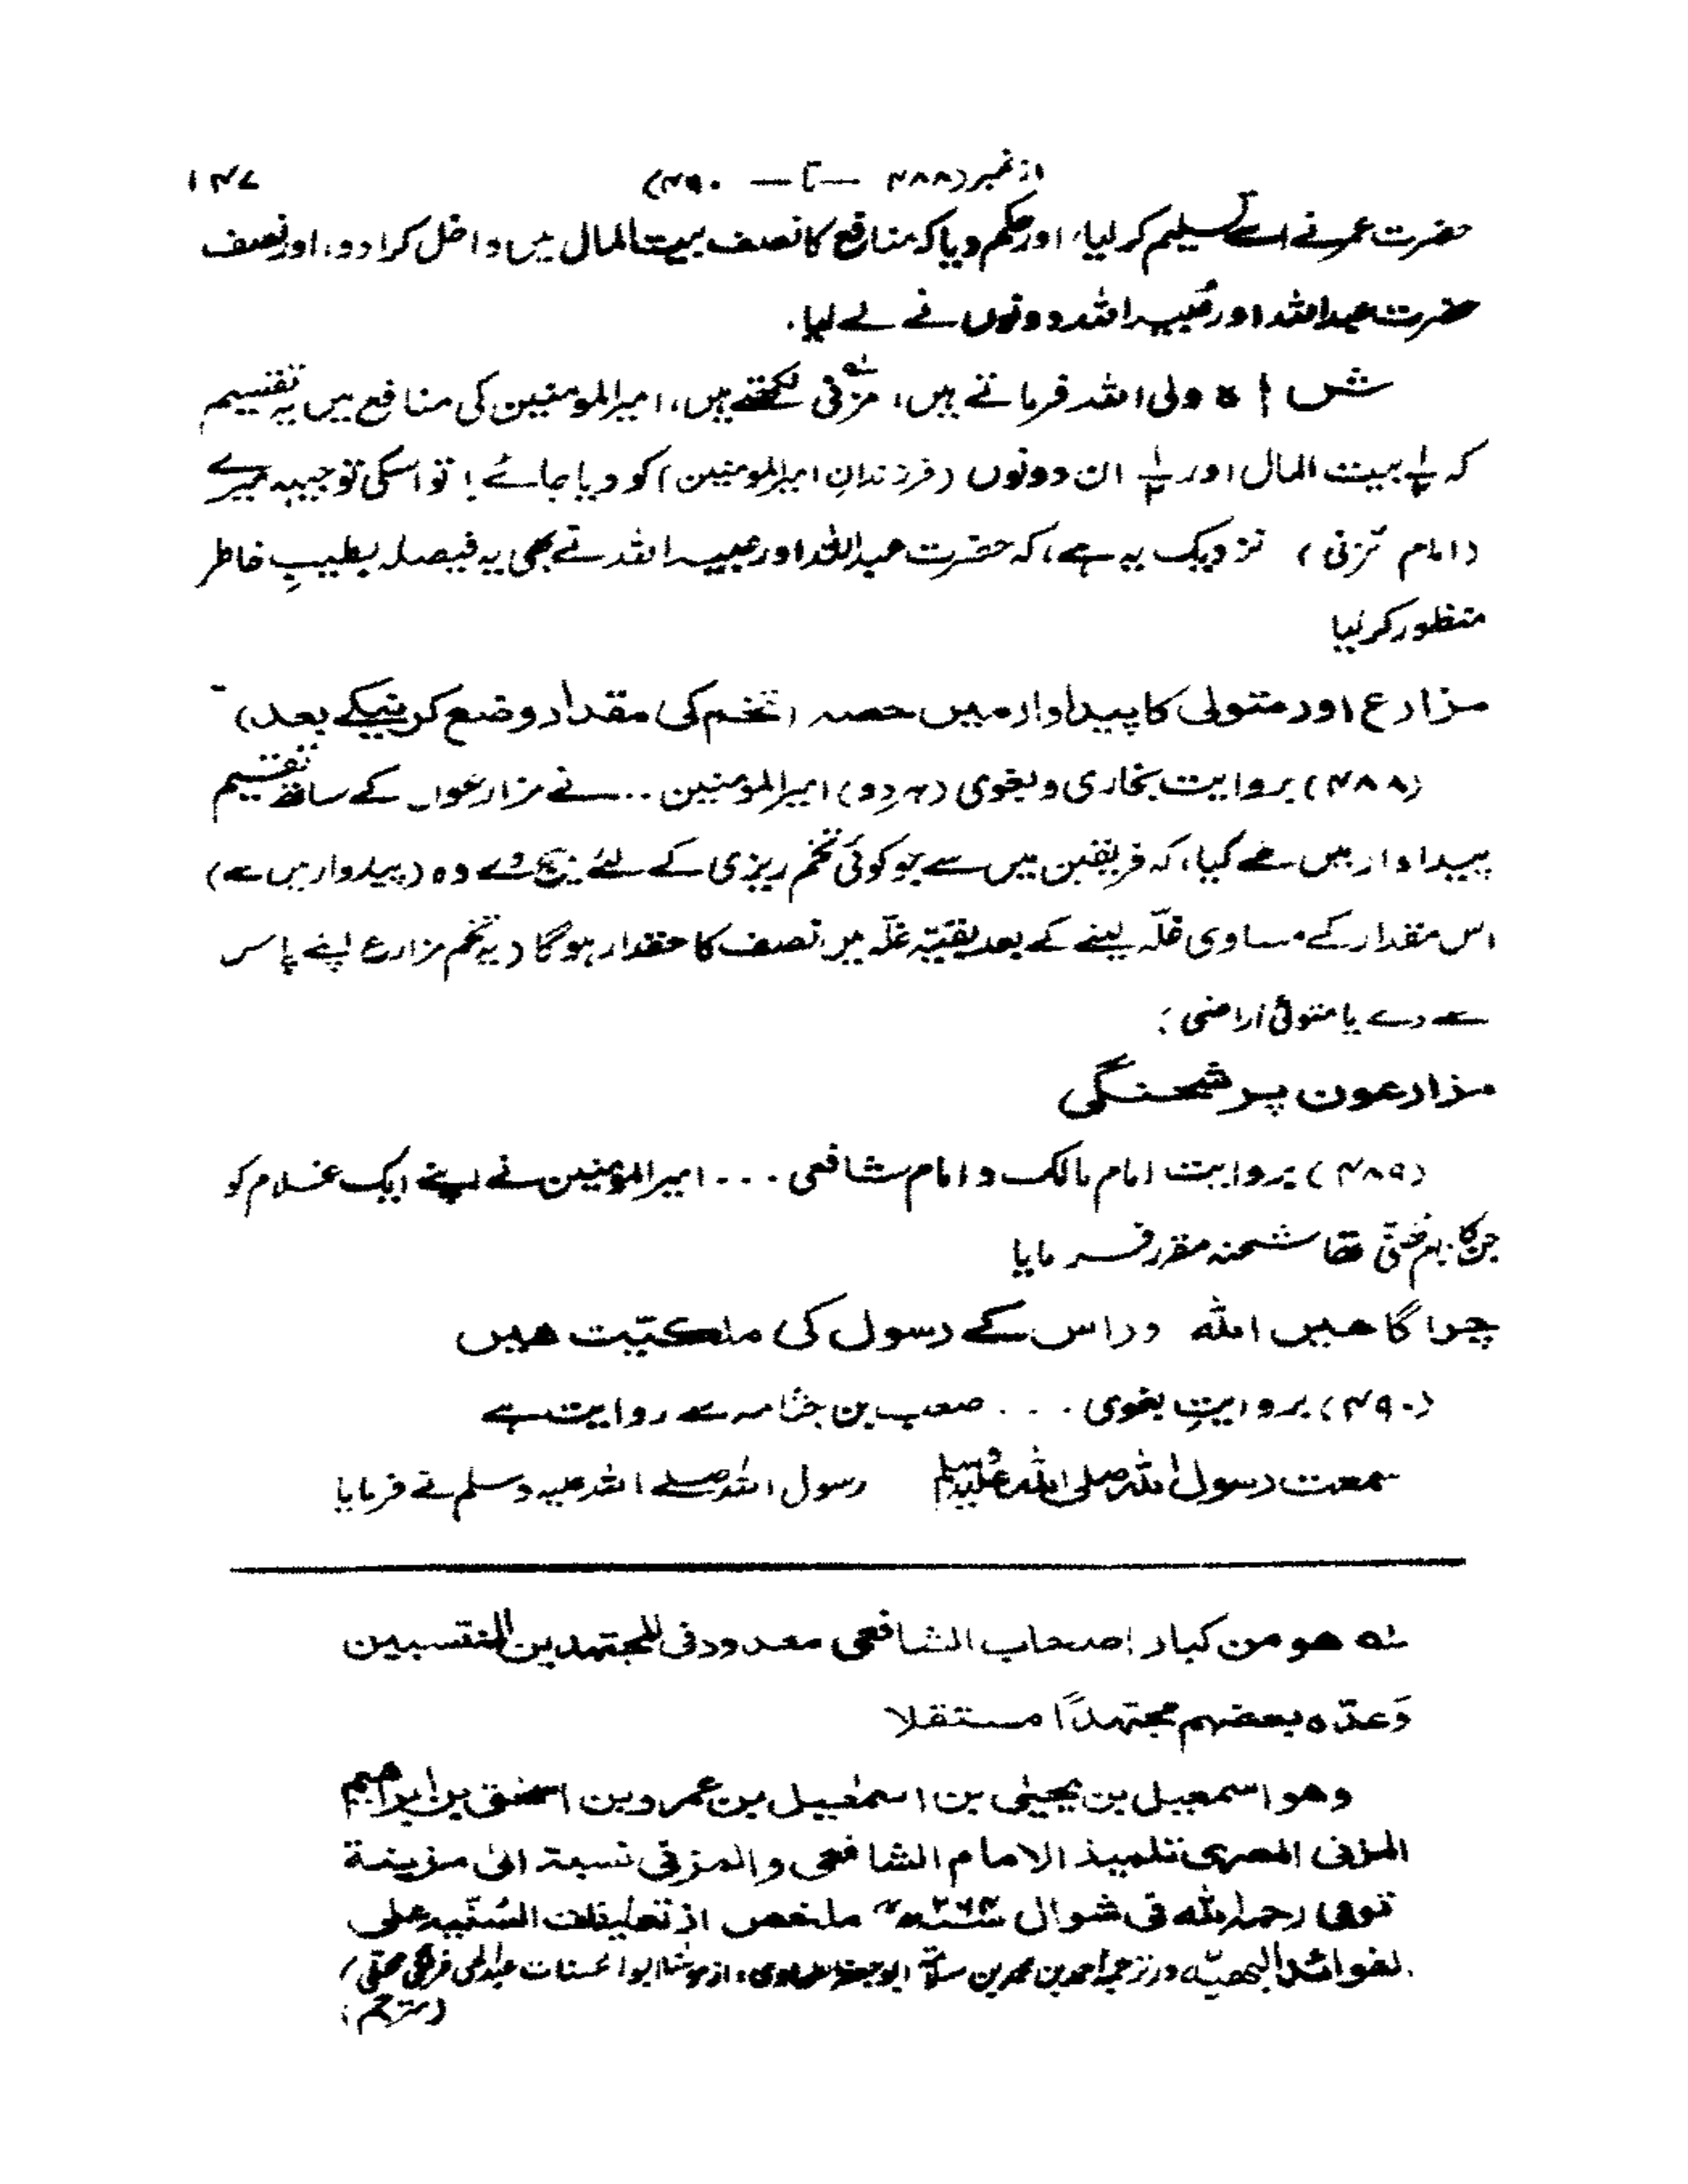 ۱۴۷ از نمبر (۴۸۸ — تا — ۴۹۰)
حضرت عمر نے اسے تسلیم کر لیا، اور حکم دیا کہ منافع کا نصف بیت المال میں داخل کرا دو، اور نصف
حضرت عبداللہ اور عُبیداللہ دونوں نے لے لیا.
ش ا ہ ولی اللہ فرماتے ہیں، مُزنی لہ لکھتے ہیں، امیرالمومنین کی منافع میں یہ تقسیم
کہ ½ بیت المال اور ½ ان دونوں (فرزندانِ امیرالمومنین) کو دیا جائے! تو اسکی توجیہہ میرے
(امام مُزنی) نزدیک یہ ہے، کہ حضرت عبداللہ اور عبیداللہ نے بھی یہ فیصلہ بطیبِ خاطر
منظور کر لیا
مزارع اور متولی کا پیداوار میں حصہ (تخم کی مقدار وضع کرنیکے بعد)
(۴۸۸) بروایت بخاری و بغوی (ہر دو) امیرالمومنین ... نے مزارعوں کے ساتھ تقسیم
پیداوار میں طے کیا، کہ فریقین میں سے جو کوئی تخم ریزی کے لئے بیج دے وہ (پیداوار میں سے)
اس مقدار کے مساوی غلّہ لینے کے بعد بقیّہ غلّہ میں نصف کا حقدار ہوگا (یہ تخم مزارع اپنے پاس
سے دے یا متولّی اراضی)
مزارعون پر شحنگی
(۴۸۹) بروایت امام مالک و امام شافعی ... امیرالمومنین نے اپنے ایک غلام کو
جن کا نام ھُنیّ تھا شحنہ مقرر فرمایا
چراگاھیں اللہ اور اس کے رسول کی ملکیّت ھیں
(۴۹۰) بروایتِ بغوی ... صعب بن جثّامہ سے روایت ہے
سمعت رسول اللہ صلی اللہ علیہ وسلم رسول اللہ صلے اللہ علیہ وسلم نے فرمایا
لہ ھو من کبار اصحاب الشافعی معدود فی المجتہدین المنتسبین
وَعدّہ بعضہم مجتہدًا مستقلا
وھو اسمعیل بن یحییٰ بن اسمٰعیل بن عمرو بن اسحٰق بن ابراھیم
المزنی المصری تلمیذ الامام الشافعی والمزنی نسبۃ الیٰ مزینۃ
توفی رحمہ اللہ فی شوال ۲۶۴ھ" ملخص از تعلیقات السُنّیہ علی
الفوائد البھیّہ در ترجمہ احمد بن محمد بن سلامۃ ابوجعفر طحاوی، از مولٰنا ابوالحسنات عبدالحی فرنگی محلی)
(مترجم)